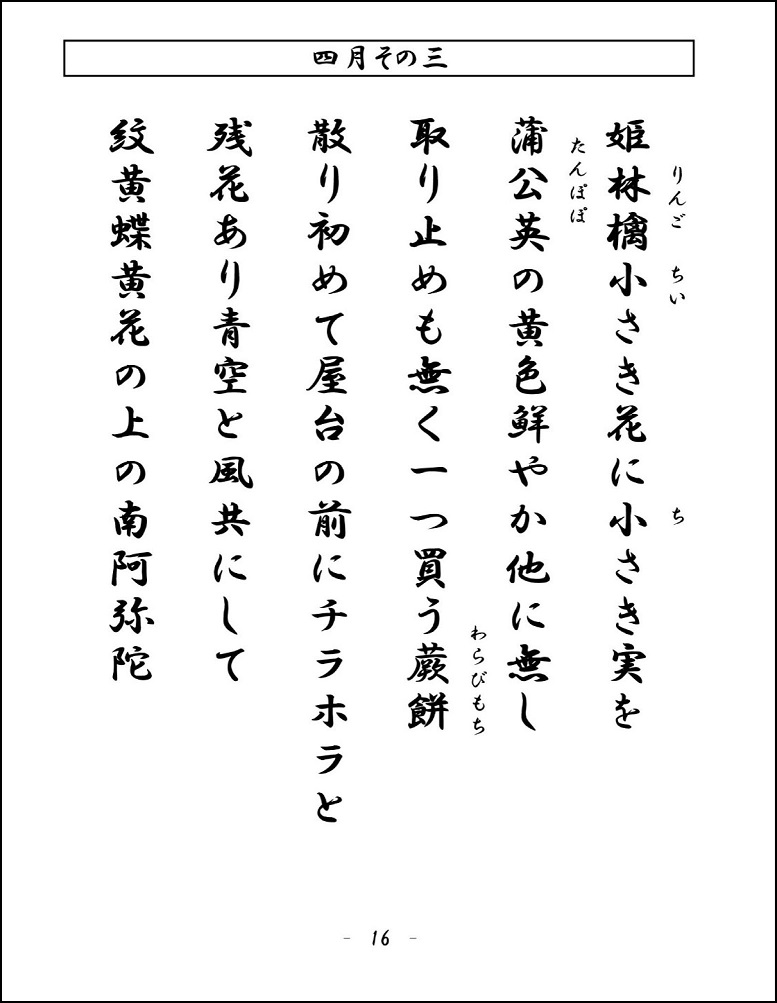 四月その三
姫林檎小さき花に小さき実を
りんご ちい ち
蒲公英の黄色鮮やか他に無し
たんぽぽ
取り止めも無く一つ買う蕨餅
わらびもち
散り初めて屋台の前にチラホラと
残花あり青空と風共にして
紋黄蝶黄花の上の南阿弥陀
- 16 -